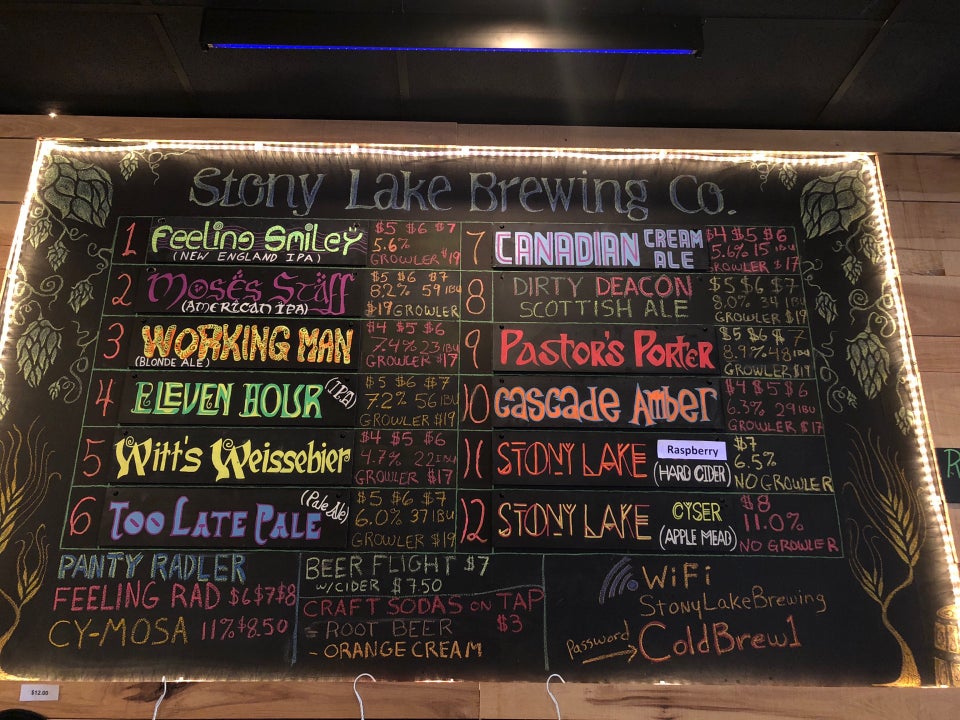 Stony Lake Brewing Co.
1 Feeling Smiley
(NEW ENGLAND IPA)
$5 $6 $7
5.6%
GROWLER $19
2 Moses Staff
(AMERICAN IPA)
$5 $6 $7
8.2% 59 IBU
$19 GROWLER
3 WORKING MAN
(BLONDE ALE)
$4 $5 $6
7.4% 23 IBU
GROWLER $17
4 ELEVEN HOUR (IPA)
$5 $6 $7
7.2% 56 IBU
GROWLER $19
5 Witt's Weissebier
$4 $5 $6
4.7% 22 IBU
GROWLER $17
6 TOO LATE PALE (Pale Ale)
$5 $6 $7
6.0% 37 IBU
GROWLER $19
7 CANADIAN CREAM ALE
$4 $5 $6
5.6% 15 IBU
GROWLER $17
8 DIRTY DEACON
SCOTTISH ALE
$5 $6 $7
8.0% 34 IBU
GROWLER $19
9 PASTOR'S PORTER
$5 $6 $7
8.9% 48 IBU
GROWLER $19
10 CASCADE AMBER
$4 $5 $6
6.3% 29 IBU
GROWLER $17
11 STONY LAKE Raspberry
(HARD CIDER)
$7
6.5%
NO GROWLER
12 STONY LAKE CYSER
(APPLE MEAD)
$8
11.0%
NO GROWLER
PANTY RADLER
FEELING RAD $6 $7 $8
CY-MOSA 11% $8.50
BEER FLIGHT $7
W/CIDER $7.50
CRAFT SODAS ON TAP
- ROOT BEER $3
- ORANGE CREAM
WiFi
StonyLakeBrewing
Password
ColdBrew1
$12.00
R